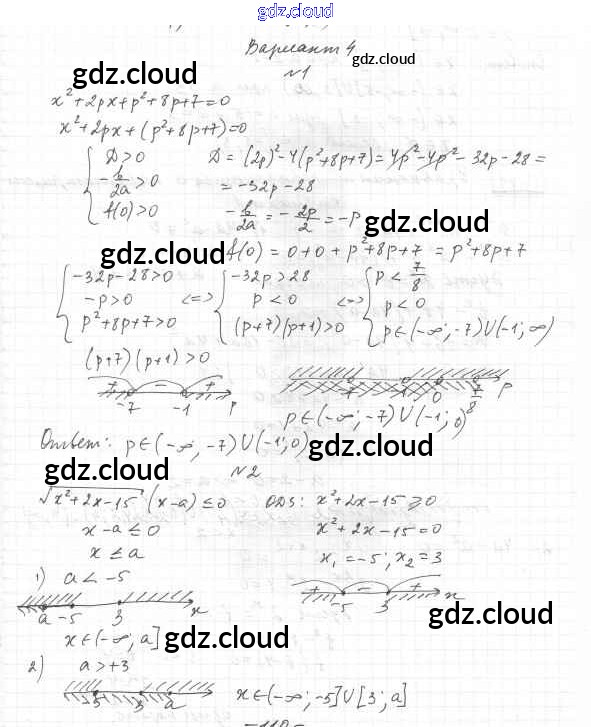 gdz.cloud
Вариант 4
gdz.cloud
gdz.cloud
№1
x²+2px+p²+8p+7=0
x²+2px+(p²+8p+7)=0
{ D>0   D = (2p)²-4(p²+8p+7) = 4p²-4p²-32p-28 =
-b/2a>0   = -32p-28
f(0)>0   -b/2a = -2p/2 = -p
gdz.cloud
gdz.cloud
f(0) = 0+0+p²+8p+7 = p²+8p+7
{ -32p-28>0   { -32p>28   { p < 7/8
-p>0 <=> p<0 <=> p<0
p²+8p+7>0   (p+7)(p+1)>0   p∈(-∞; -7)∪(-1; ∞)
(p+7)(p+1)>0
+ - +
-7 -1 p   -7 -1 0 7/8 p
p∈(-∞; -7)∪(-1; 0)
Ответ: p∈(-∞; -7)∪(-1; 0)
gdz.cloud
gdz.cloud
№2
√x²+2x-15 (x-a) ≤ 0   ОДЗ: x²+2x-15 ⩾ 0
x-a ≤ 0   x²+2x-15=0
x ≤ a   x₁ = -5; x₂ = 3
1) a < -5
+ - +
a -5 3 x   -5 3 x
gdz.cloud
x∈(-∞; a]
gdz.cloud
2) a>+3
-5 3 a   x∈(-∞; -5]∪[3; a]
gdz.cloud